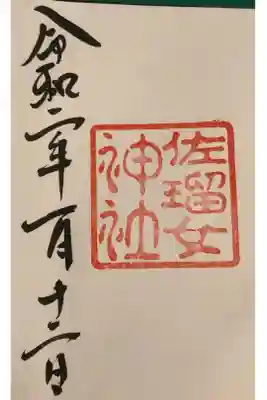 佐瑠女神社
令和二年一月十二日